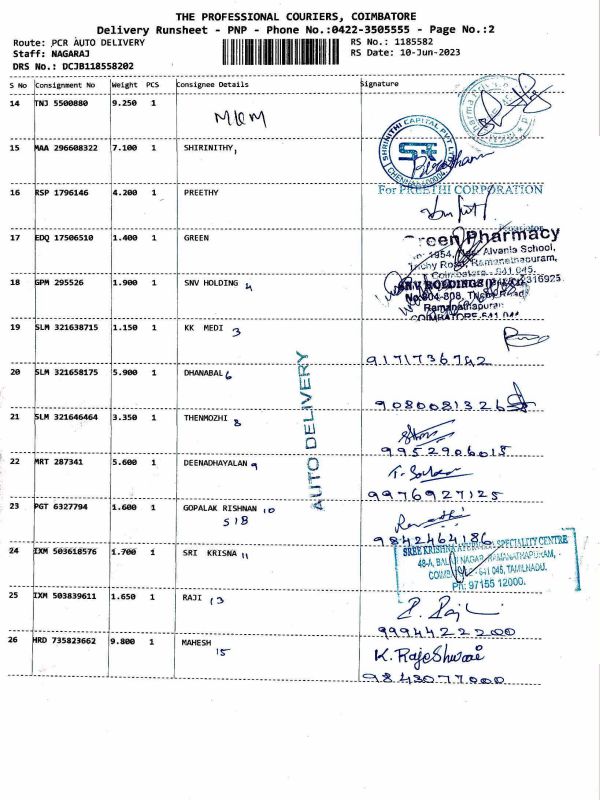 THE PROFESSIONAL COURIERS, COIMBATORE
Delivery Runsheet - PNP - Phone No.:0422-3505555 - Page No.:2
Route: PCR AUTO DELIVERY
RS No.: 1185582
Staff: NAGARAJ
RS Date: 10-Jun-2023
DRS No.: DCJB118558202
S No Consignment No Weight PCS Consignee Details Signature
14 TNJ 5500880 9.250 1 MKM
15 MAA 296608322 7.100 1 SHIRINITHY,
SHRINITHI CAPITAL PVT LTD
16 RSP 1796146 4.200 1 PREETHY
For PREETHI CORPORATION
17 EDQ 17506510 1.400 1 GREEN
Green Pharmacy
1954, Alvania School,
Trichy Road, Ramanathapuram,
Coimbatore - 641 045.
2316925
18 GPM 295526 1.900 1 SNV HOLDING 4
SNV HOLDINGS
No:804-808, Trichy Road
Ramanathapuram
COIMBATORE 641 045
19 SLM 321638715 1.150 1 KK MEDI 3
9171736742
20 SLM 321658175 5.900 1 DHANABAL 6
9080081326
AUTO DELIVERY
21 SLM 321646464 3.350 1 THENMOZHI 8
9952906015
22 MRT 287341 5.600 1 DEENADHAYALAN 9
9976927125
23 PGT 6327794 1.600 1 GOPALAK RISHNAN 10
SIB
Revathi
9842464186
24 IXM 503618576 1.700 1 SRI KRISNA 11
SREE KRISHNA SPECIALITY CENTRE
48-A, NAGAR, RAMANATHAPURAM,
641 045, TAMILNADU.
Ph: 97155 12000.
25 IXM 503839611 1.650 1 RAJI 13
9994422200
26 HRD 735823662 9.800 1 MAHESH
15
K. RajeShwari
9843077000